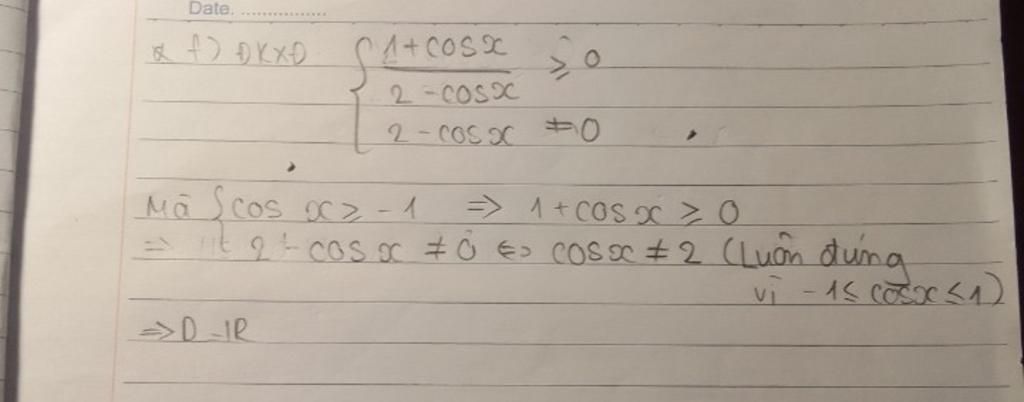 Date. ................
f) ĐKXĐ { 1+cosx / 2-cosx ≥ 0
2-cosx ≠ 0
Mà { cos x ≥ -1 => 1+cosx ≥ 0
=> 2 - cosx ≠ 0 <=> cosx ≠ 2 (Luôn đúng
vì -1 ≤ cosx ≤ 1)
=> D = R